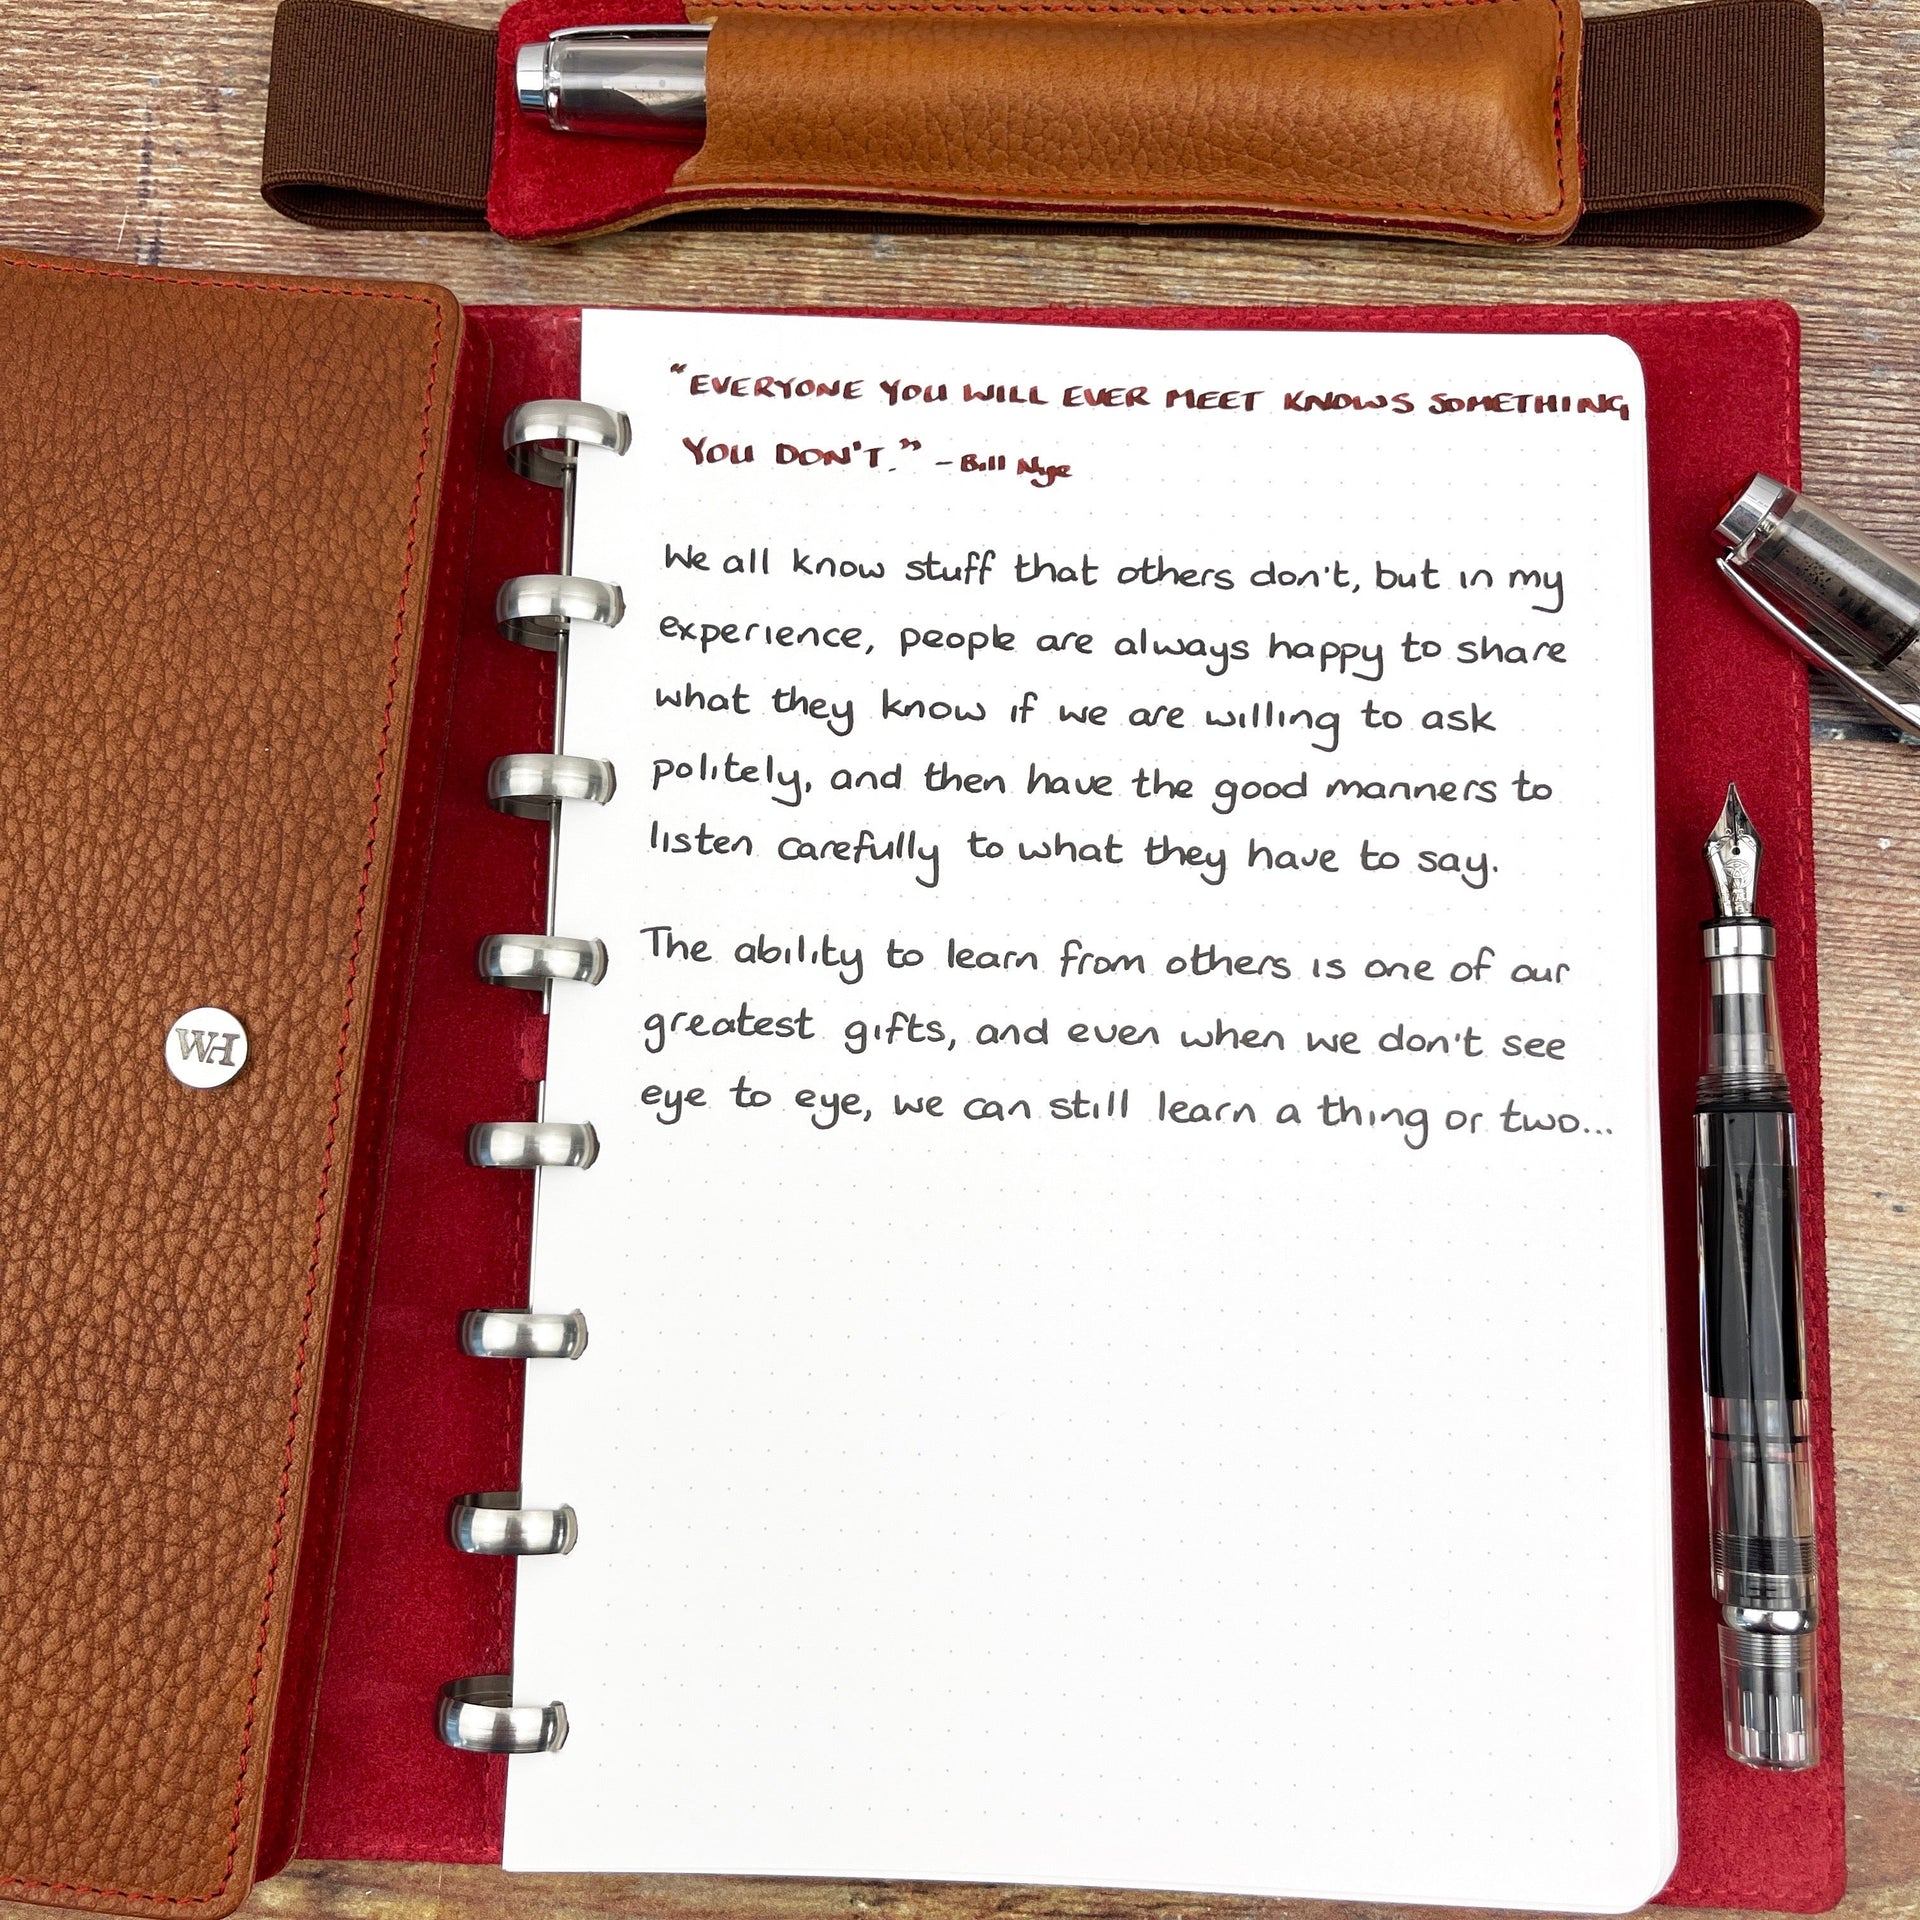 "EVERYONE YOU WILL EVER MEET KNOWS SOMETHING
YOU DON'T." - Bill Nye
We all know stuff that others don't, but in my
experience, people are always happy to share
what they know if we are willing to ask
politely, and then have the good manners to
listen carefully to what they have to say.
The ability to learn from others is one of our
greatest gifts, and even when we don't see
eye to eye, we can still learn a thing or two...
WH